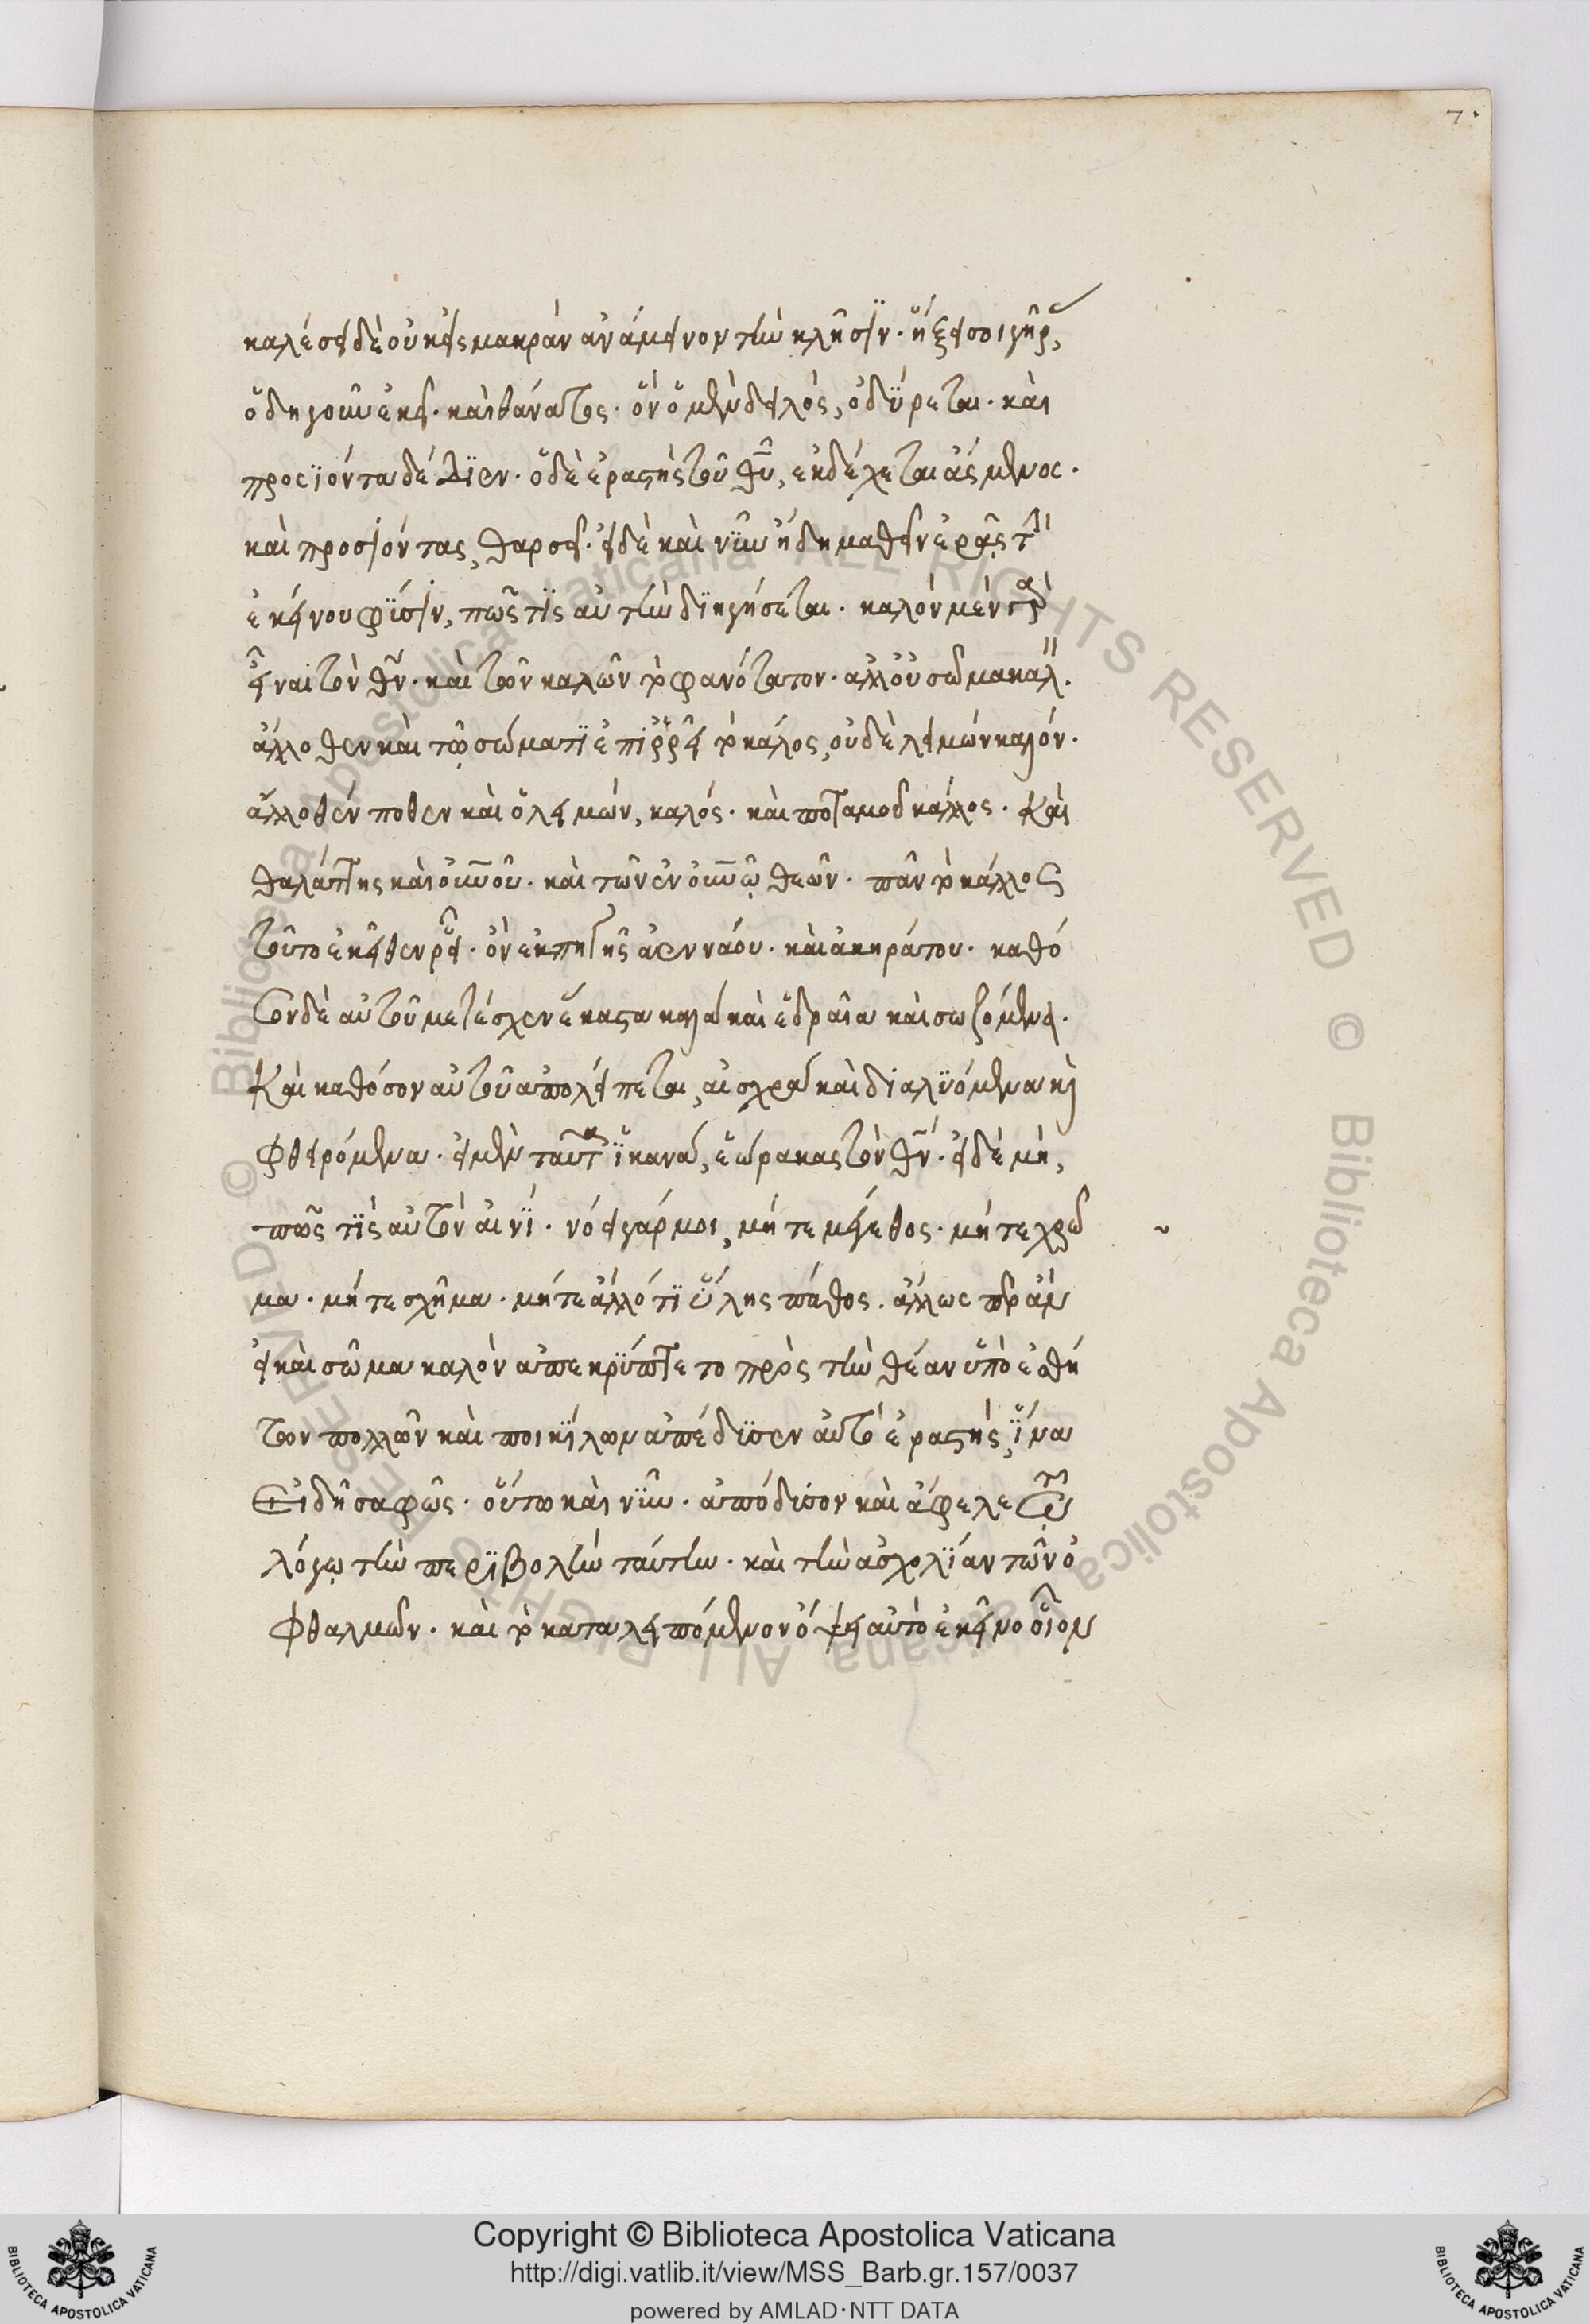 7.
καλέσει δὲ οὐκ εἰς μακρὰν ἀνάμεινον τὴν κλῆσιν. ἥξει σοι γῆρ,
ὁδηγοῦν ἐκεῖ. καὶ θάνατος. ὃν ὁ μὲν δειλὸς, ὀδύρεται. καὶ
προσϊόντα δέδϊεν. ὁ δὲ ἐραστὴς τοῦ θυ, ἐκδέχεται ἄσμενος.
καὶ προσιόντας, θαρσεῖ. εἰ δὲ καὶ νῦν ἤδη μαθεῖν ἐρᾷς τὴ
ἐκείνου φϋσιν, πῶς τῒς αὐτὴν δϊηγήσεται. καλὸν μὲν γὰρ
εἶναι τὸν θν. καὶ τῶν καλῶν τὸ φανότατον. ἀλλ' οὐ σῶμα καλ.
ἀλλ' ὅθεν καὶ τῷ σώματϊ ἐπιῤῥεῖ τὸ κάλος, οὐδὲ λειμὼν καλόν.
ἀλλ' ὅθέν ποθεν καὶ ὁ λειμὼν, καλός. καὶ ποταμοῦ κάλλος. καὶ
θαλάττης καὶ οὐνοῦ. καὶ τῶν ἐν οὐνῷ θεῶν. πᾶν τὸ κάλλος
τοῦτο ἐκεῖθεν ῥεῖ. ὃν ἐκ πηγῆς ἀεννάου. καὶ ἀκηράτου. καθό
σον δὲ αὐτοῦ μετέσχεν ἕκαστα καλὰ καὶ ἑδραῖα καὶ σωζόμενα.
καὶ καθόσον αὐτοῦ ἀπολείπεται, αἰσχρὰ καὶ διαλϋόμενα κὶ
φθειρόμενα. εἰ μὲν ταῦτα ϊκανὰ, ἑώρακας τὸν θν. εἰ δὲ μὴ,
πῶς τῒς αὐτὸν αἰνϊ. νόει γάρ μοι, μήτε μέγεθος. μήτε χρῶ
μα. μήτε σχῆμα. μήτε ἄλλό τϊ ὕλης πάθος. ἀλλ' ὡσπερ ἂν
εἰ καὶ σῶμα καλὸν ἀπεκρύπτετο πρὸς τὴν θέαν ὑπὸ ἐσθή
των πολλῶν καὶ ποικίλων ἀπέδϋσεν αὐτὸ ἐραστὴς, ἵνα
ἴδῃ σαφῶς. οὕτω καὶ νῦν. ἀπόδυσον καὶ ἄφελε τῷ
λόγῳ τὴν περϊβολὴν ταύτην. καὶ τὴν ἀσχολϊαν τῶν ὀ
φθαλμῶν. καὶ τὸ καταλειπόμενον ὄψει αὐτὸ ἐκεῖνο οἷον
Copyright © Biblioteca Apostolica Vaticana
http://digi.vatlib.it/view/MSS_Barb.gr.157/0037
powered by AMLAD·NTT DATA